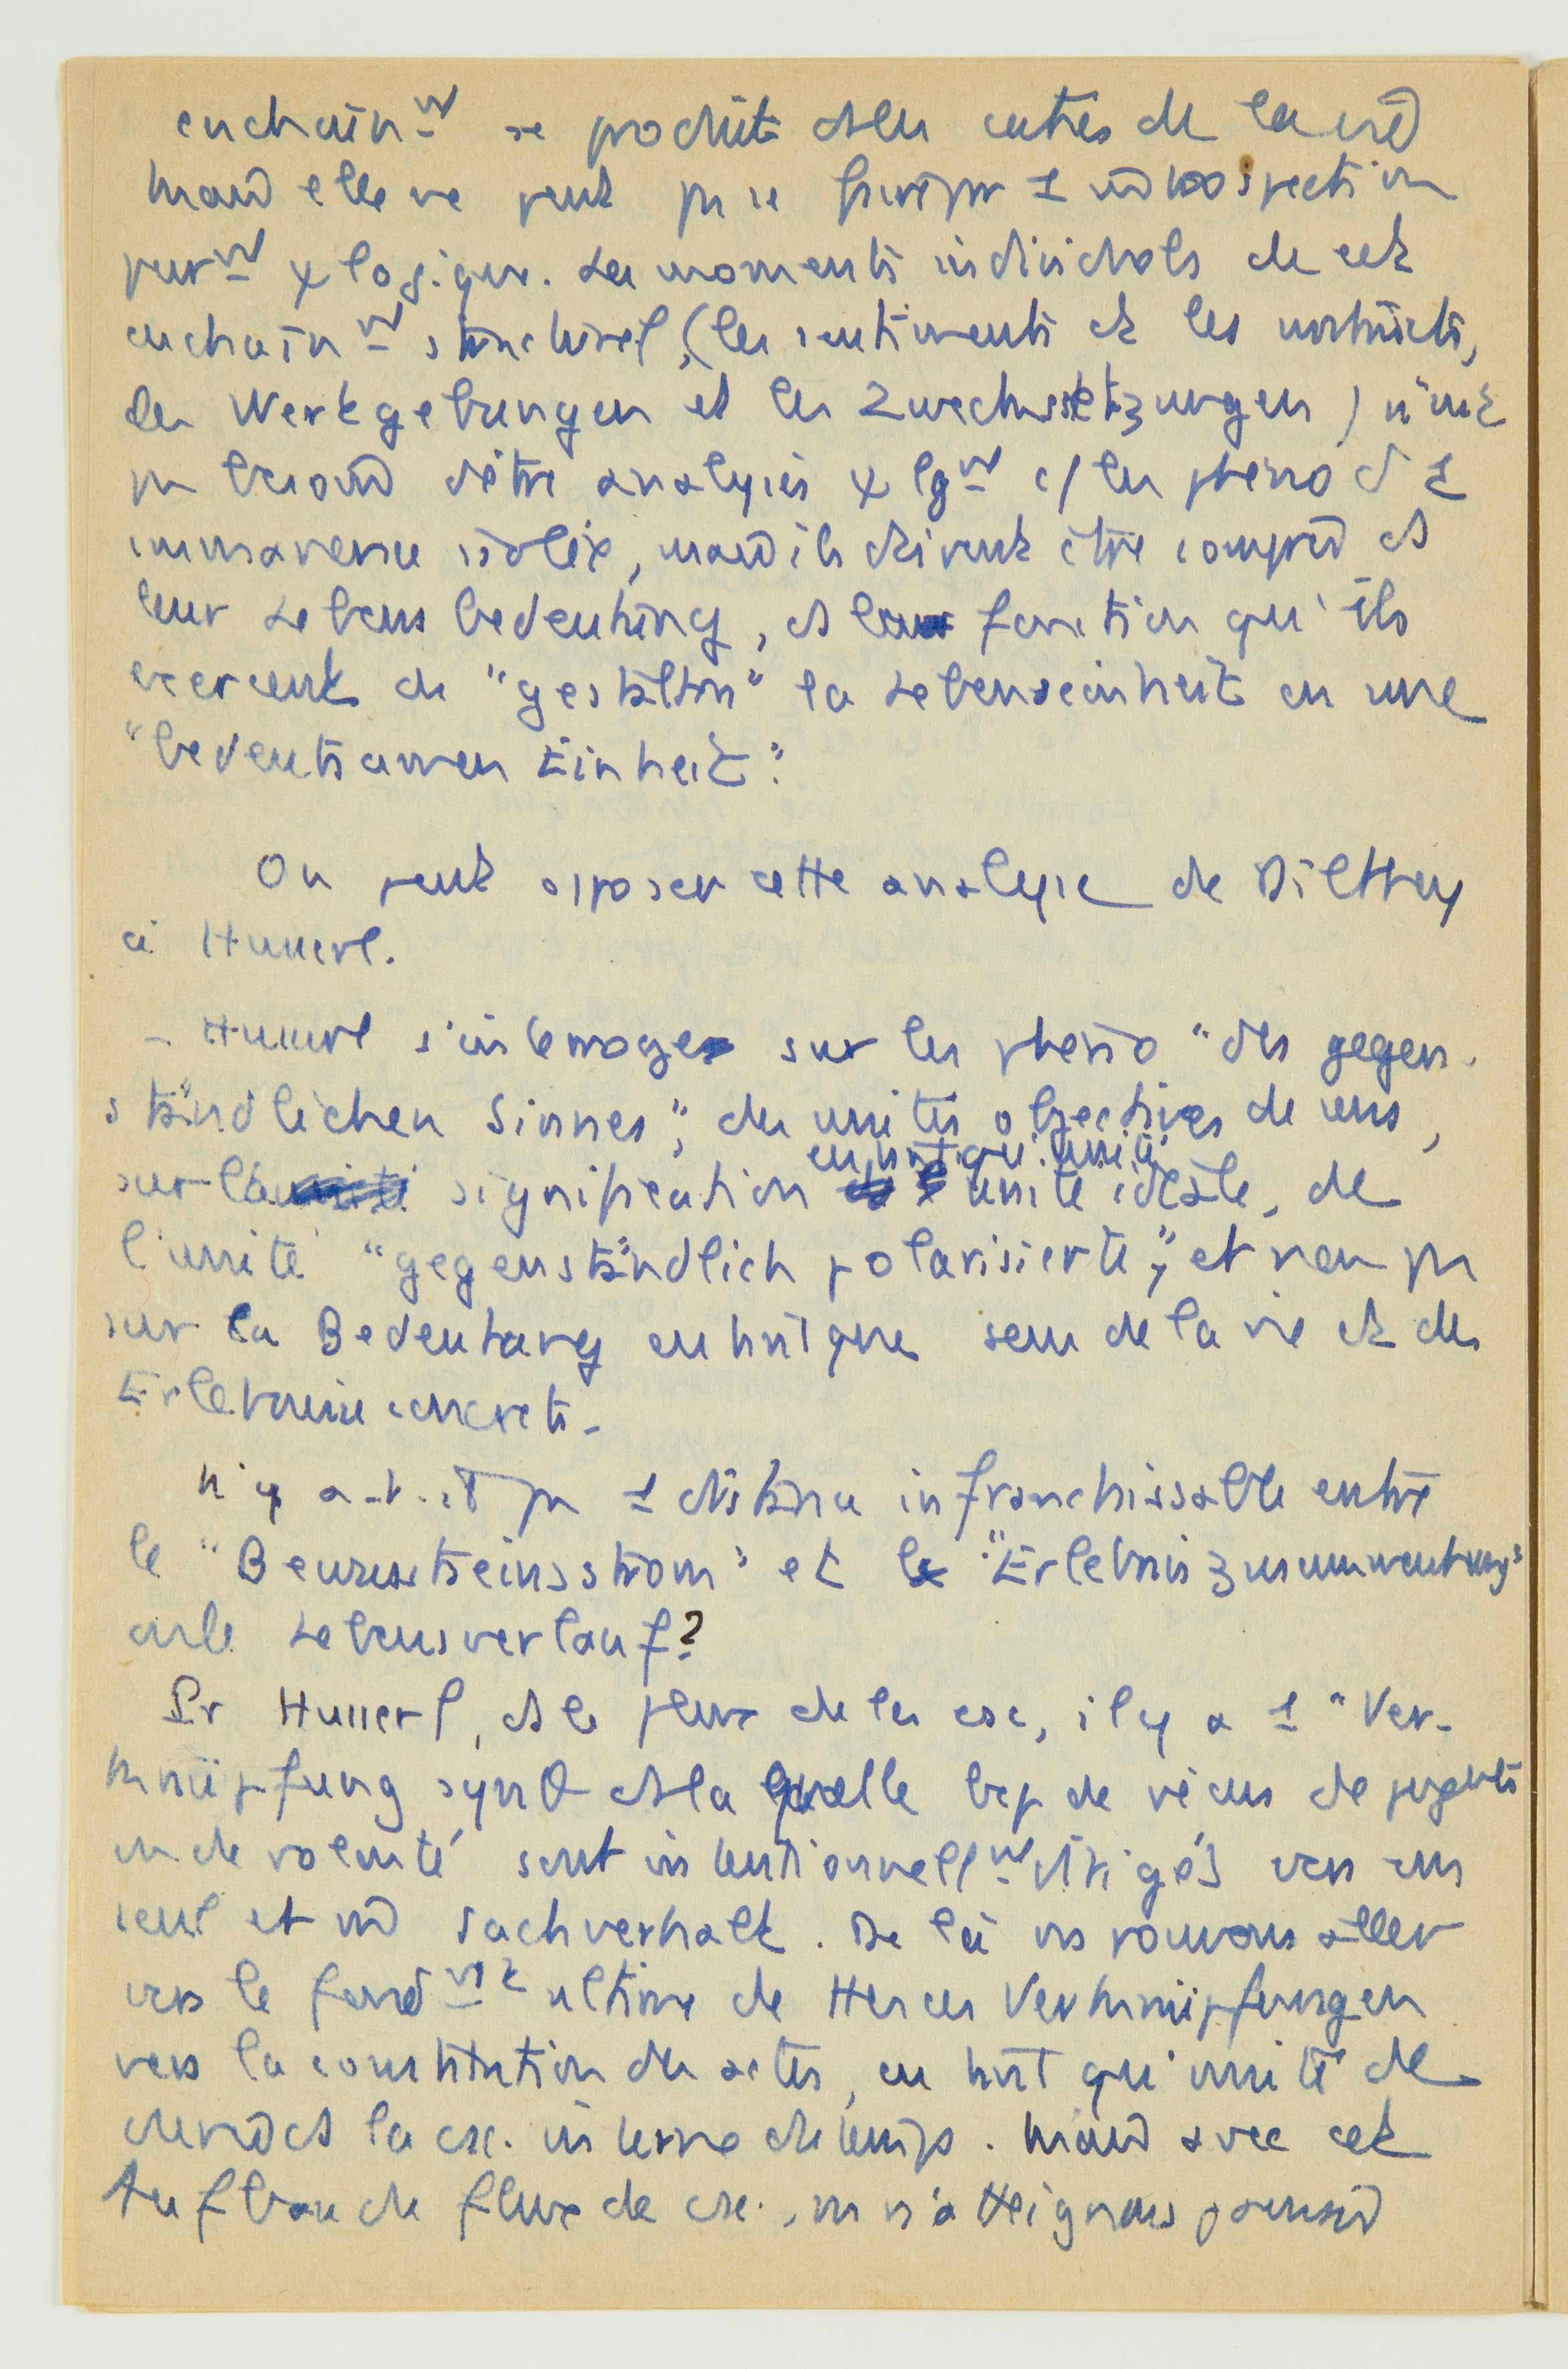 enchaînᵐᵗ se produit ds les entrés de la vie
mais elle ne peut pas se 1 introspection
purᵐᵗ ψ logique. Les moments individuels de cet
enchaînᵐᵗ structurel, (les sentiments et les instincts,
les Wertgebungen et les Zwecksetzungen) n'ont
pas besoin d'être analysés ψ lgᵐᵗ c/ les phéno d 1
immanence isolée, mais ils doivent être compris ds
leur Lebensbedeutung, ds la fonction qu'ils
exercent de "gestalten" la Lebenseinheit en une
"bedeutsamen Einheit".
On peut opposer cette analyse de Dilthey
à Husserl.
- Husserl s'interroge sur les phéno "des gegen-
ständlichen Sinnes", des unités objectives de sens,
sur la signification en tant qu'unité unité idéale, de
l'unité "gegenständlich polarisierte", et non pas
sur la Bedeutung en tant que sens de la vie et des
Erlebnisse concrets.
N'y a-t-il pas 1 distance infranchissable entre
le "Bewusstseinsstrom" et le "Erlebniszusammenhang"
ou le Lebensverlauf?
Pr Husserl, ds le flux de la csc, il y a 1 "Ver-
knüpfung synθ ds laquelle bcp de vécus de jugᵐᵗˢ
ou de volonté sont intentionnellᵐᵗ dirigés vers un
seul et mê Sachverhalt. De là ns pouvons aller
vers le fondᵐᵗ ultime de ttes ces Verknüpfungen
vers la constitution des actes, en tant qu'unité de
durée ds la csc. interne du temps. Mais avec cet
Aufbau du flux de csc., ns n'atteignons jamais